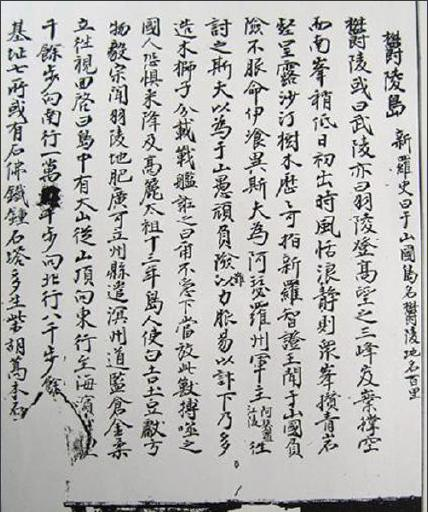 鬱陵島 新羅史曰于山國島名鬱陵地名百里
鬱陵或曰武陵亦曰羽陵登高望之三峰岌嶪撐空
而南峯稍低日初出時風恬浪静則衆峯攢青岩
壑呈露沙汀樹木歷々可指新羅智證王聞于山國負
險不服命伊飡異斯夫為阿瑟羅州軍主 阿瑟羅江陵 往
討之斯夫以為于山愚頑負險難以力服易以計下乃多
造木獅子分載戰艦誑之曰爾不下當放此獸搏噬之
國人恐懼来降及高麗太祖十三年島人使白吉土豆獻方
物毅宗聞羽陵地肥廣可立州縣遣溟州道監倉金柔
立往視回啓曰島中有大山從山頂向東行至海濱
千餘步向南行一萬千步向北行八千步餘
基址七所或有石佛鐵鍾石塔多生柴胡蒿本石